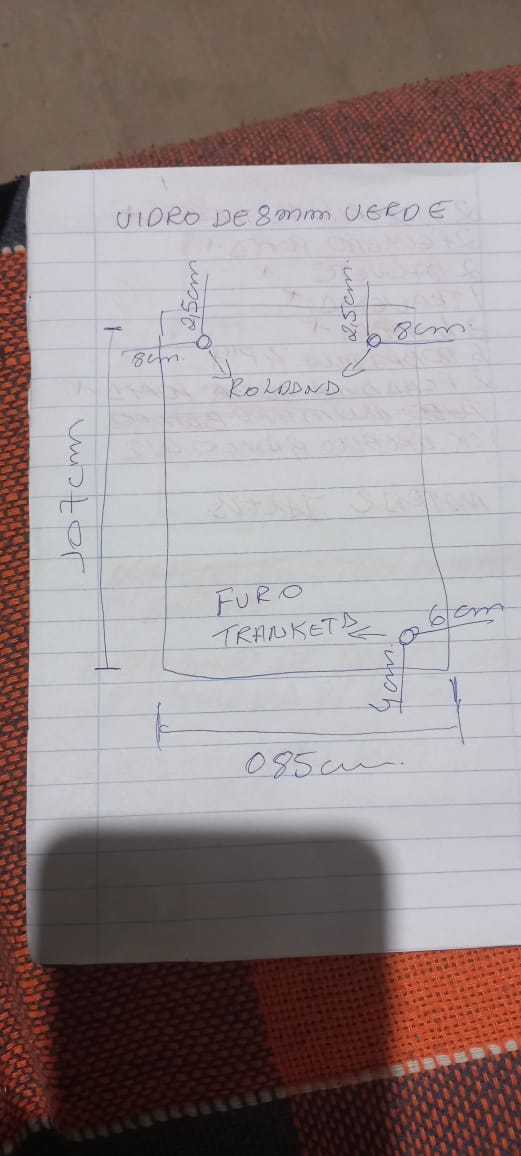 VIDRO DE 8mm VERDE
2,5cm
2,5cm.
8cm.
8cm.
ROLDAND
107cm
FURO
TRANKETA
6cm
4cm.
085cm.